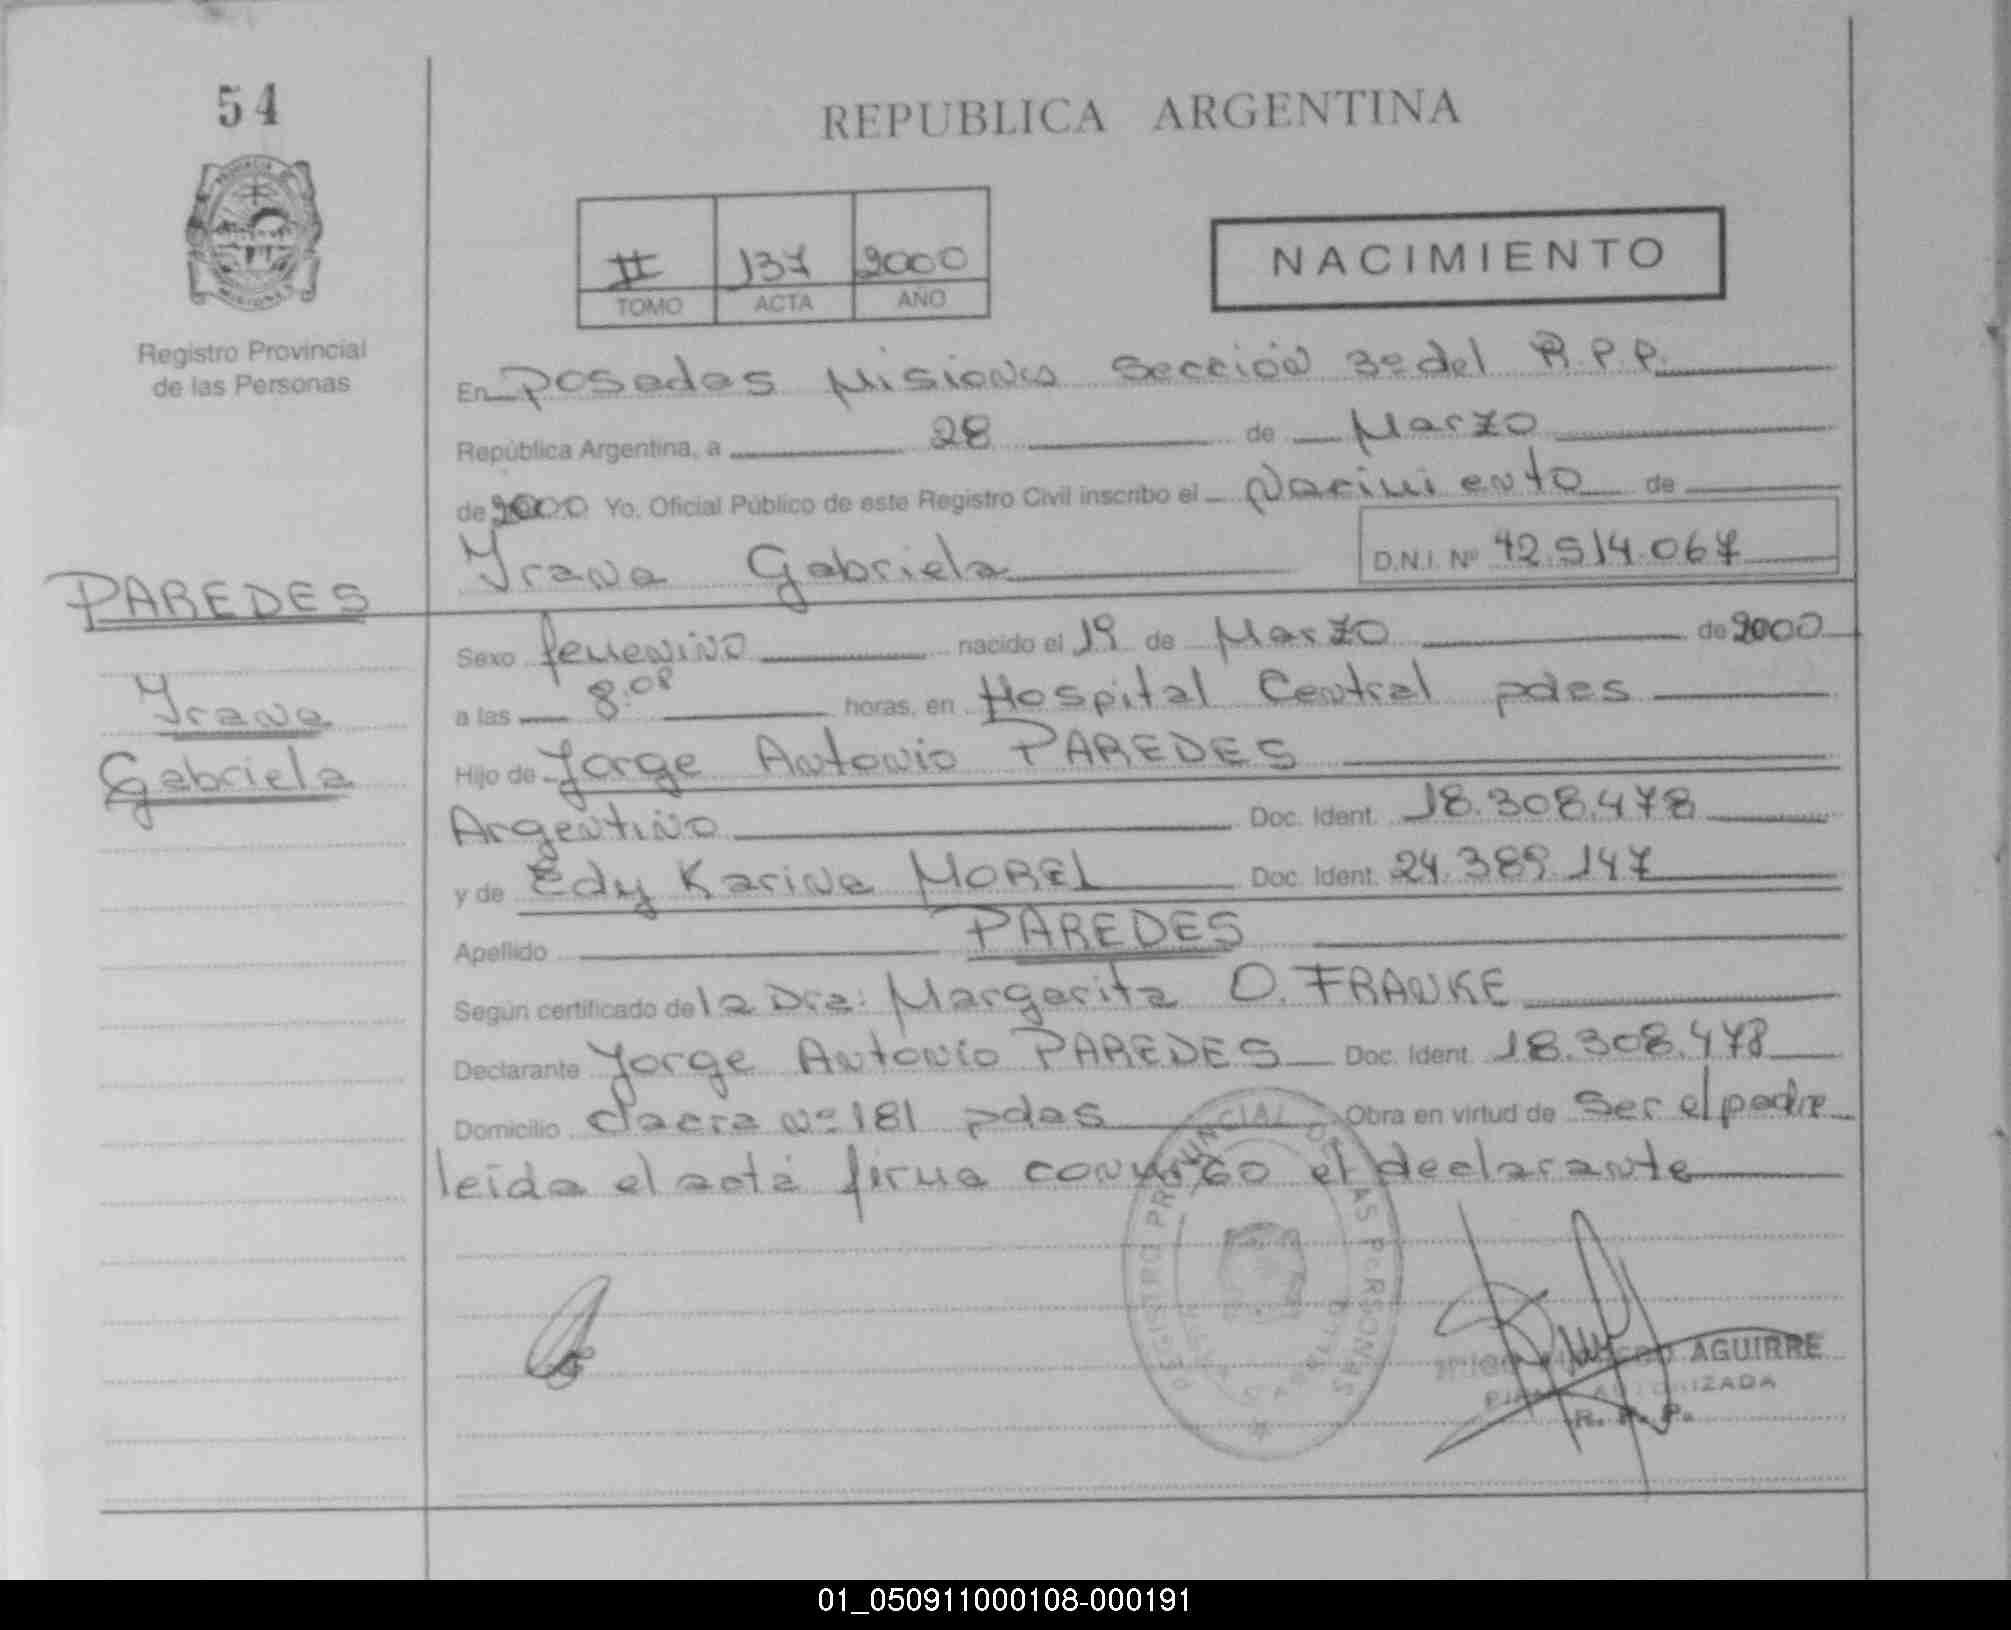 54
REPUBLICA ARGENTINA
II 137 2000
TOMO ACTA AÑO
NACIMIENTO
Registro Provincial
de las Personas
En Posadas Misiones Sección 3º del R.P.P.
República Argentina, a 28 de Marzo
de 2000 Yo, Oficial Público de este Registro Civil inscribo el Nacimiento de
Yrana Gabriela D.N.I. Nº 42.514.067
PAREDES
Yrana
Gabriela
Sexo femenino nacido el 19 de Marzo de 2000
a las 8:08 horas, en Hospital Central pdas
Hijo de Jorge Antonio PAREDES
Argentino Doc. Ident. 18.308.478
y de Edy Karina MOREL Doc. Ident. 24.389.147
Apellido PAREDES
Según certificado de la Dra: Margarita O. FRANKE
Declarante Jorge Antonio PAREDES Doc. Ident. 18.308.478
Domicilio chacra nº 181 pdas Obra en virtud de ser el padre
leida el acta firma conmigo el declarante
REGISTRO PROVINCIAL DE LAS PERSONAS
AGUIRRE
FIRMA AUTORIZADA
R. P. P.
01_050911000108-000191